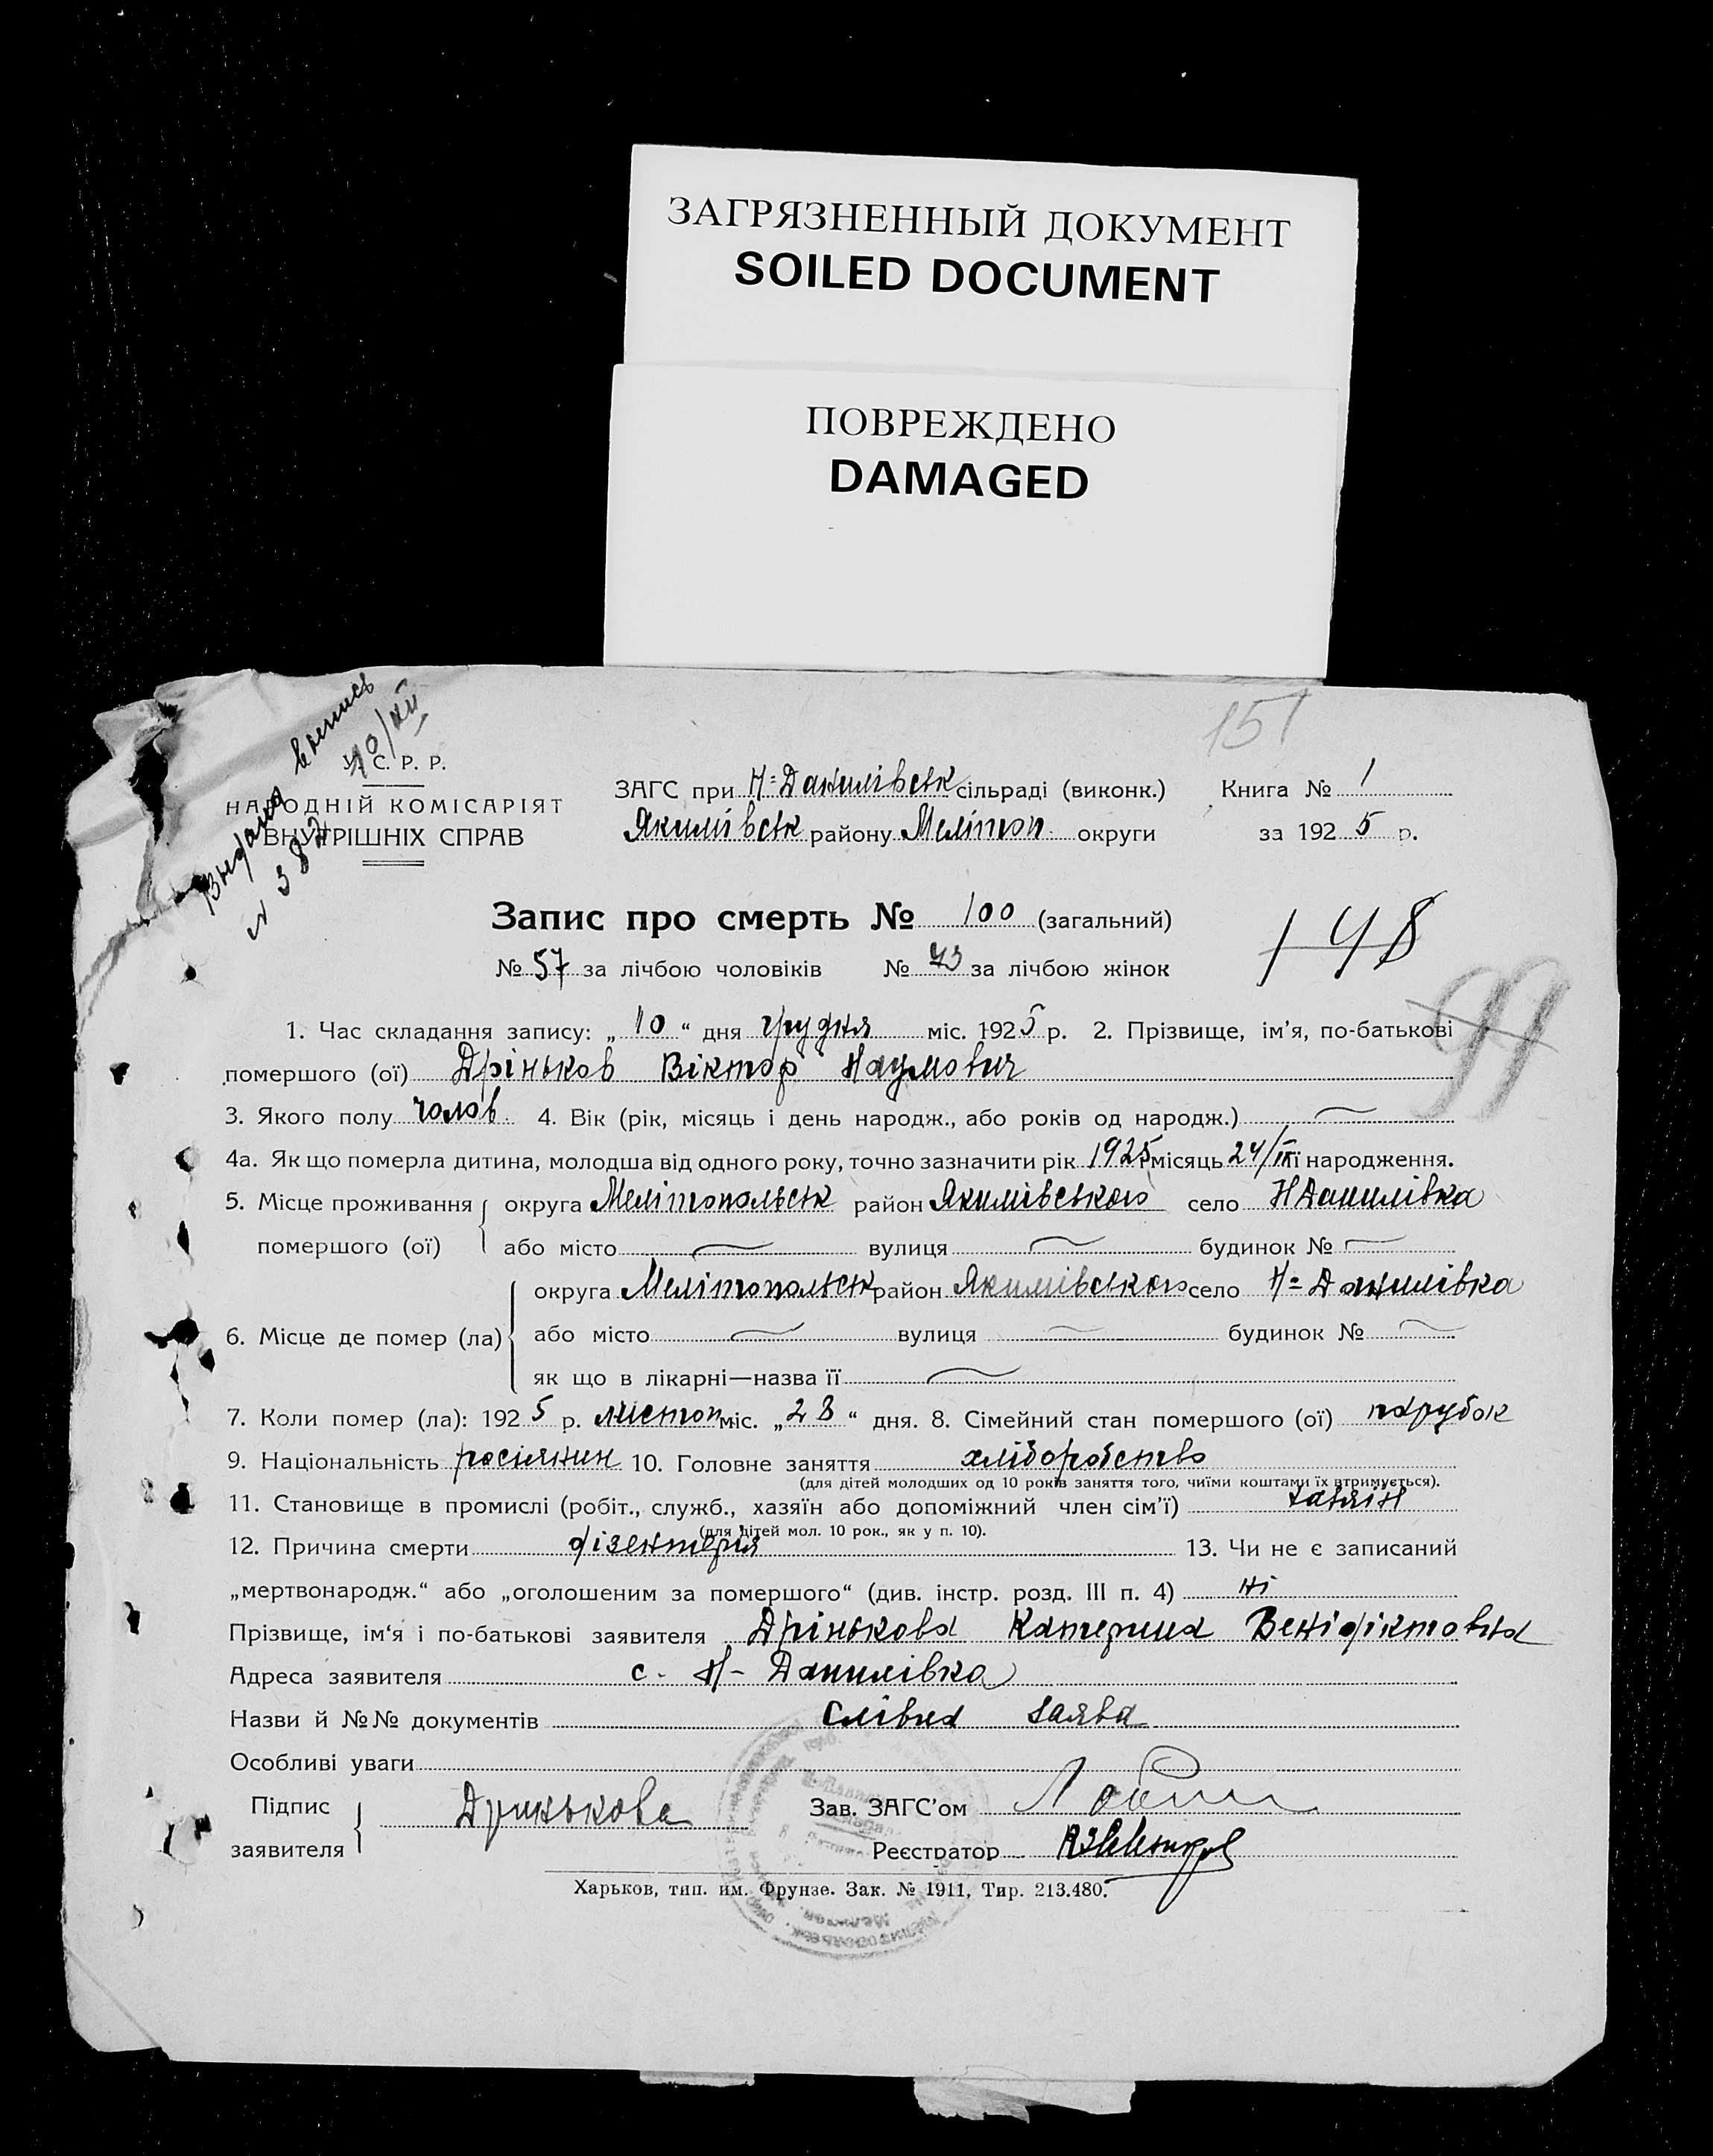 ЗАГРЯЗНЕННЫЙ ДОКУМЕНТ
SOILED DOCUMENT
ПОВРЕЖДЕНО
DAMAGED
151
Выдана выпись
10/XII
№ 382
У. С. Р. Р.
НАРОДНІЙ КОМІСАРІЯТ
ВНУТРІШНІХ СПРАВ
ЗАГС при Н=Данилівськ сільраді (виконк.)
Якимівськ району Мелітоп. округи
Книга № 1
за 1925 р.
Запис про смерть № 100 (загальний)
№ 57 за лічбою чоловіків № 43 за лічбою жінок
148
99
1. Час складання запису: „10“ дня грудня міс. 1925 р. 2. Прізвище, ім’я, по-батькові
помершого (ої) Дріньков Віктор Наумович
3. Якого полу чолов. 4. Вік (рік, місяць і день народж., або років од народж.)
4а. Як що померла дитина, молодша від одного року, точно зазначити рік 1925 місяць 24/ІХ її народження.
5. Місце проживання округа Мелітопольськ район Якимівського село Н Данилівка
помершого (ої) або місто вулиця будинок №
округа Мелітопольськ район Якимівського село Н=Данилівка
6. Місце де помер (ла) або місто вулиця будинок №
як що в лікарні—назва її
7. Коли помер (ла): 1925 р. листоп міс. „28“ дня. 8. Сімейний стан помершого (ої) парубок
9. Національність росіянин 10. Головне заняття хліборобство
(для дітей молодших од 10 років заняття того, чиїми коштами їх втримується).
11. Становище в промислі (робіт., служб., хазяїн або допоміжний член сім’ї) хазяїн
(для дітей мол. 10 рок., як у п. 10).
12. Причина смерти дізентерія 13. Чи не є записаний
„мертвонародж.“ або „оголошеним за помершого“ (див. інстр. розд. III п. 4) ні
Прізвище, ім‘я і по-батькові заявителя Дрінькова Катерина Венідіктовна
Адреса заявителя с. Н- Данилівка
Назви й №№ документів Слівна заява
Особливі уваги
Підпис
заявителя
Дринькова
Зав. ЗАГС’ом
Реєстратор
Харьков, тип. им. Фрунзе. Зак. № 1911, Тир. 213.480.